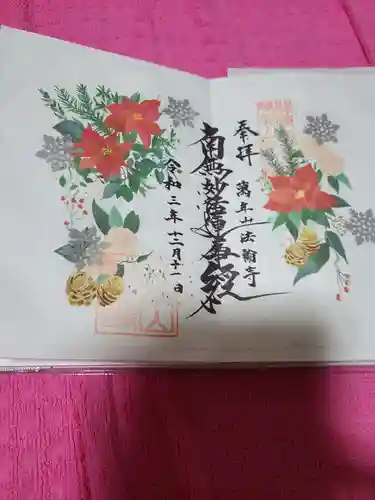 奉拝
萬年山 法輪寺
南無妙法蓮華経
令和三年十二月十一日